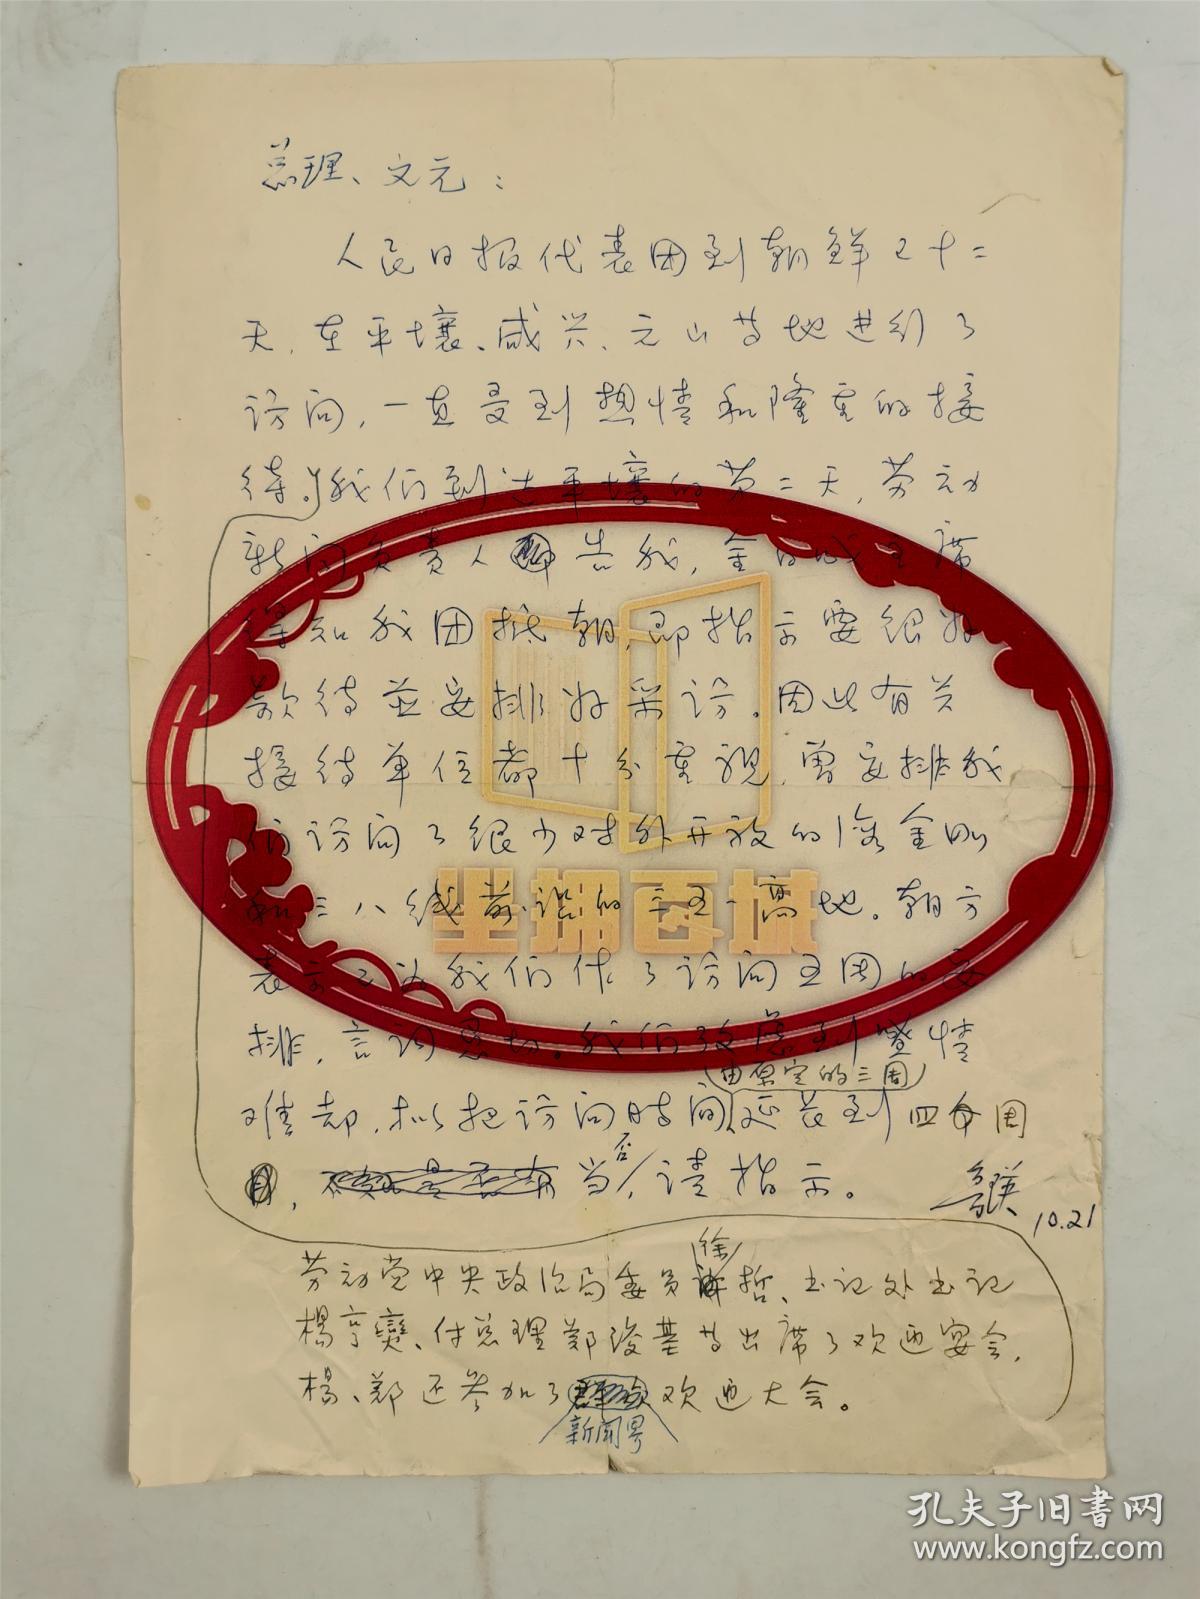 总理、文元：
人民日报代表团到朝鲜已十二
天，在平壤、咸兴、元山等地进行了
访问，一直受到热情和隆重的接
待。我们到达平壤的第二天，劳动
新闻负责人告我，金日成主席
得知我团抵朝，即指示要很好
款待并安排好采访。因此有关
接待单位都十分重视，曾安排我
们访问了很少对外开放的海金刚
和三八线前沿的三五一高地。朝方
表示已为我们作了访问五周的安
排，言词恳切。我们考虑到盛情
由原定的三周
难却，拟把访问时间延长到四周
，当否，请指示。
鲁瑛
10.21
劳动党中央政治局委员徐哲、书记处书记
杨亨燮、付总理郑浚基等出席了欢迎宴会，
杨、郑还参加了欢迎大会。
新闻界
坐拥百城
孔夫子旧书网
www.kongfz.com